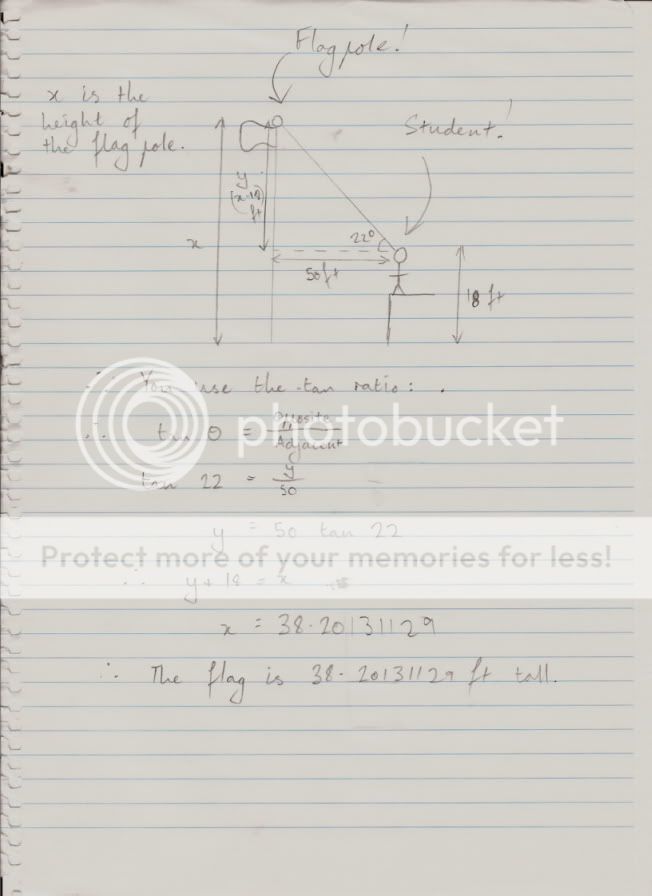 Flag pole!
x is the
height of
the flag pole.
Student!
y
ft
x
22°
50 ft
18 ft
∴ You use the tan ratio:
photobucket
∴ tan θ = Opposite / Adjacent
tan 22 = y / 50
y = 50 tan 22
Protect more of your memories for less!
∴ y + 18 = x
x = 38.20131129
∴ The flag is 38.20131129 ft tall.